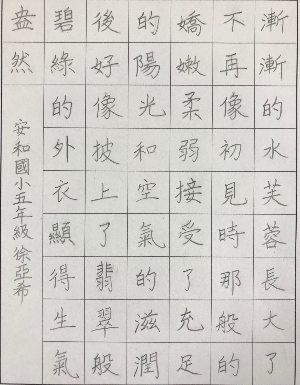 漸漸的水芙蓉長大了
不再像初見時那般的
嬌嫩柔弱接受了充足
的陽光和空氣的滋潤
後好像披上了翡翠般
碧綠的外衣顯得生氣
盎然
安和國小五年級徐亞希